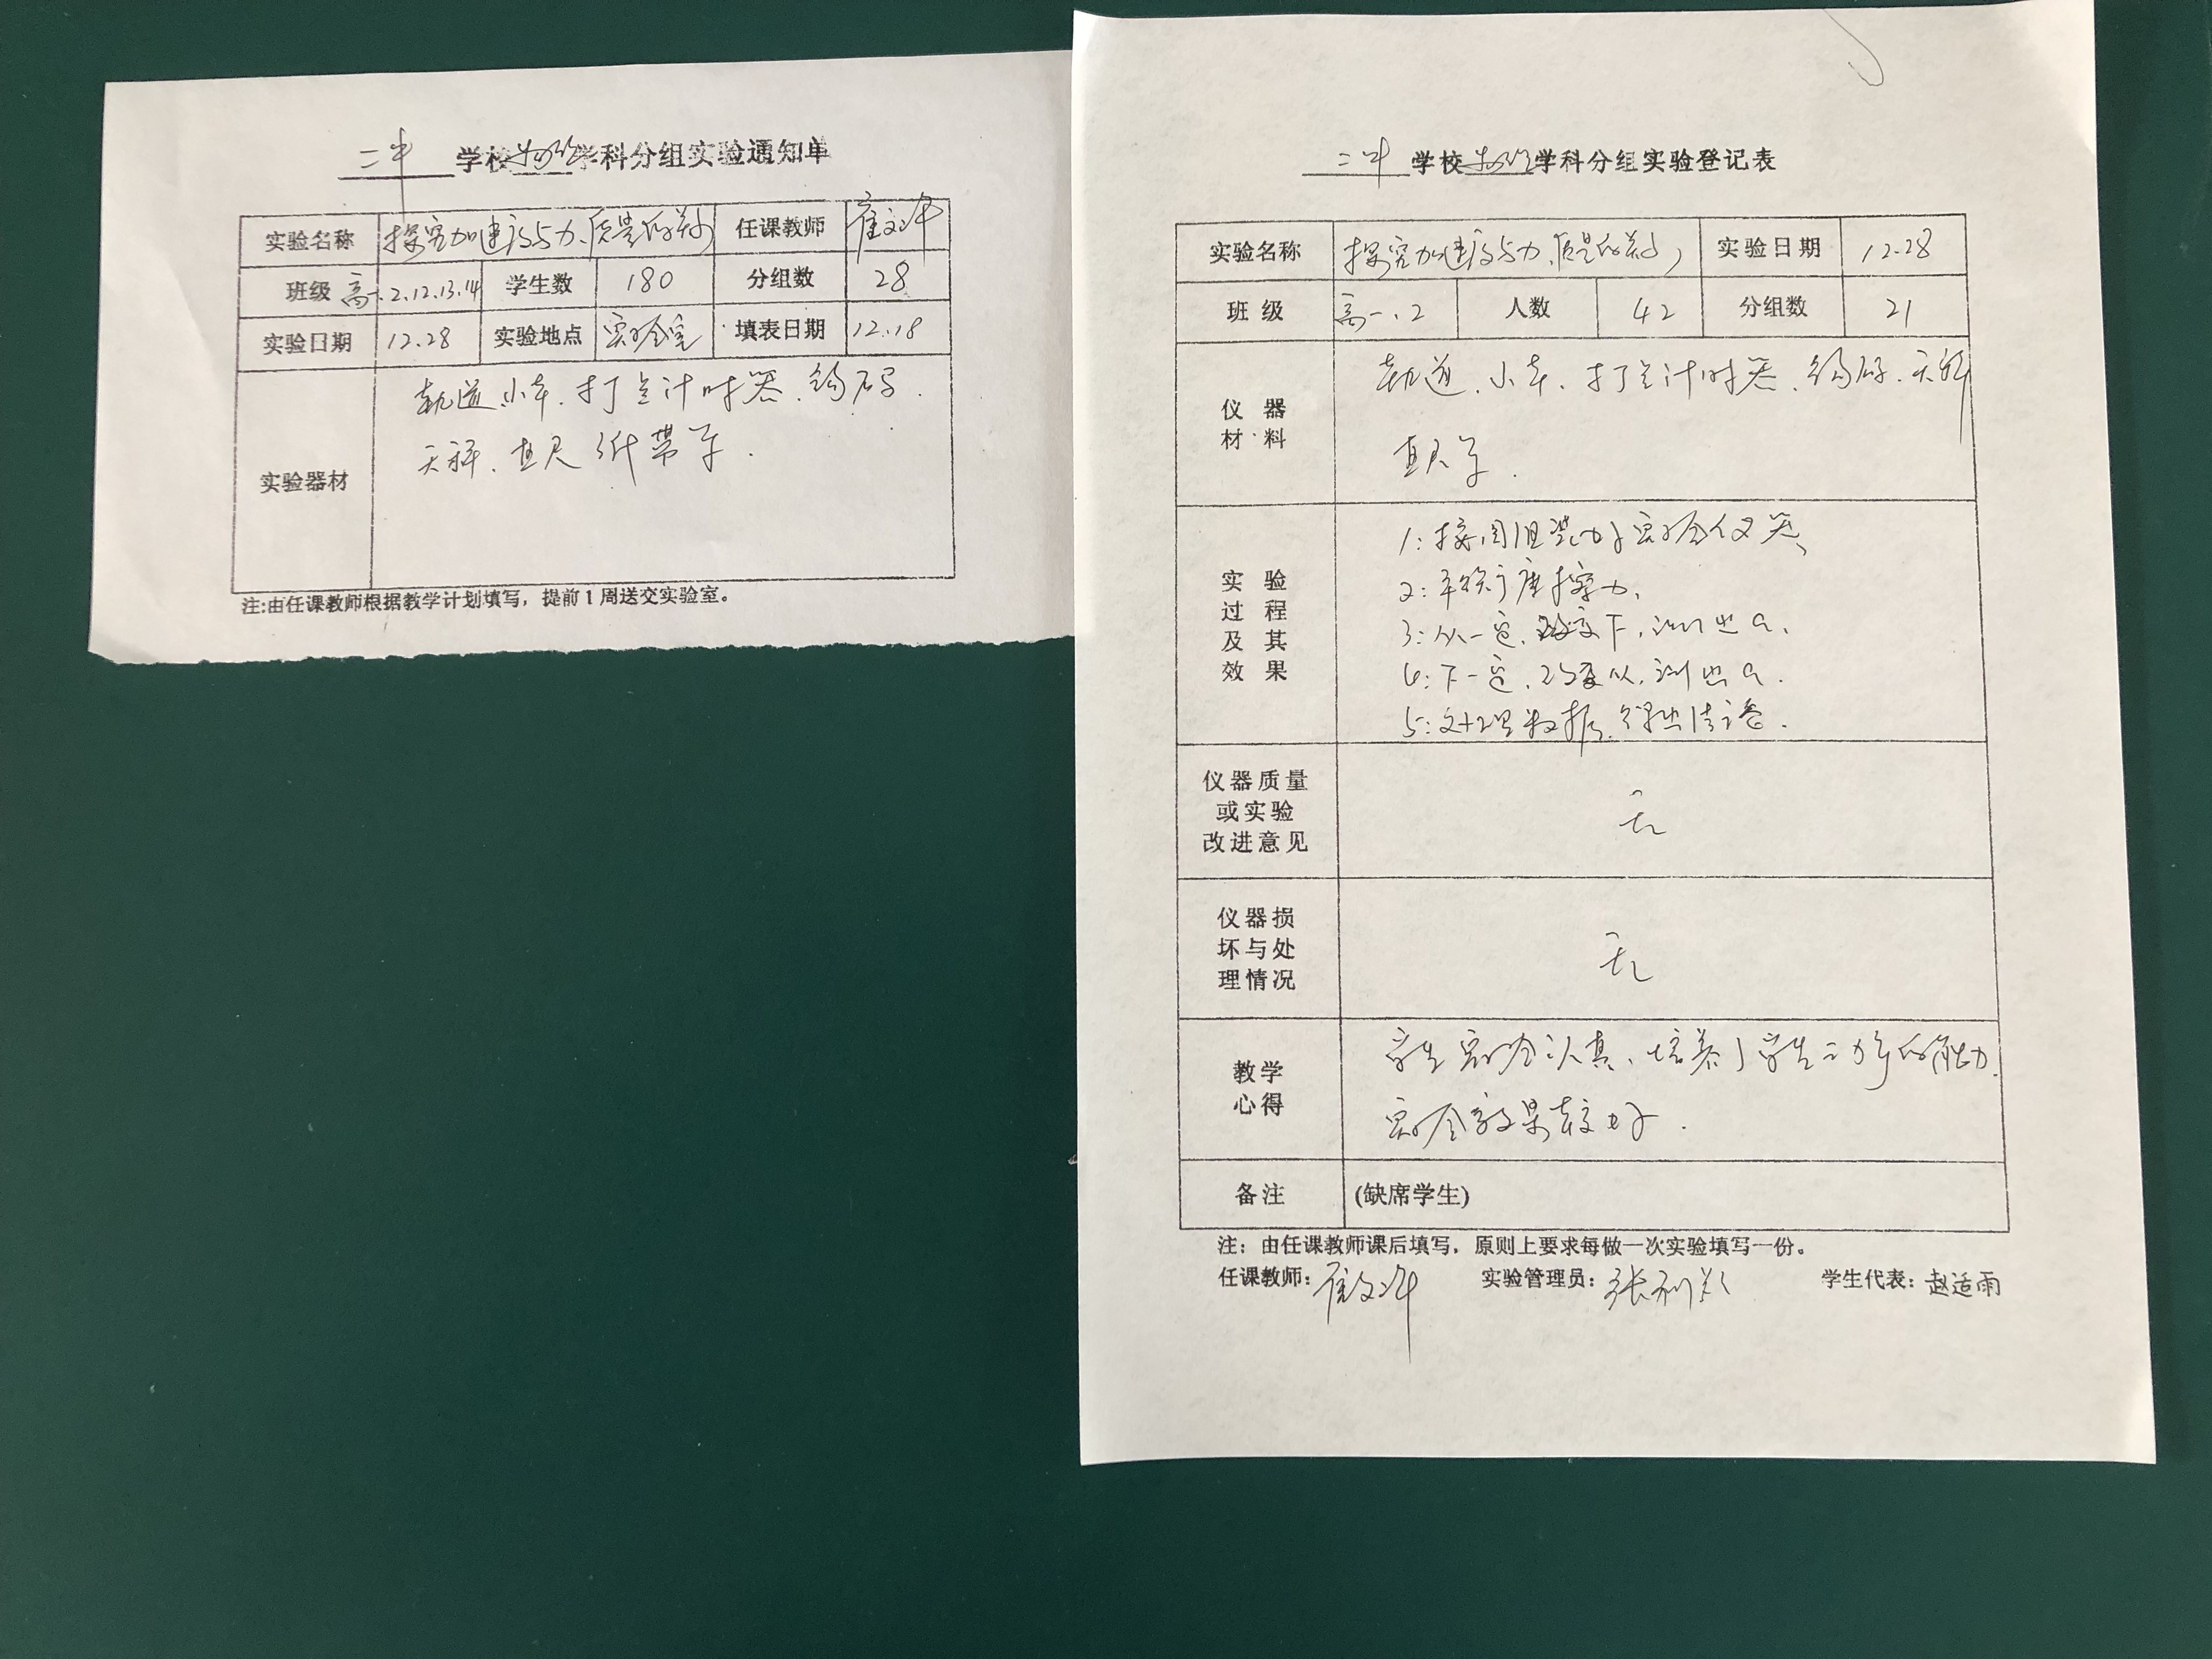 二中 学校 物理 学科分组实验通知单
实验名称 探究加速度与力、质量的关系 任课教师 崔文
班级 高一.2.12.13.14 学生数 180 分组数 28
实验日期 12.28 实验地点 实验室 填表日期 12.18
实验器材
轨道.小车.打点计时器.钩码.
天秤.直尺 纸带等.
注:由任课教师根据教学计划填写，提前1周送交实验室。
二中 学校 物理 学科分组实验登记表
实验名称 探究加速度与力、质量的关系 实验日期 12.28
班级 高一.2 人数 42 分组数 21
仪器材料
轨道.小车.打点计时器.钩码.天秤
直尺等.
实验过程及其效果
1:按图组装好实验仪器、
2:平衡摩擦力、
3:M一定.改变F,测出a、
4:F一定.改变M,测出a.
5:处理数据.得出结论.
仪器质量或实验改进意见
无
仪器损坏与处理情况
无
教学心得
学生实验认真、培养了学生动手的能力.
实验效果较好.
备注 (缺席学生)
注：由任课教师课后填写，原则上要求每做一次实验填写一份。
任课教师：崔文 实验管理员：张利 学生代表：赵适雨